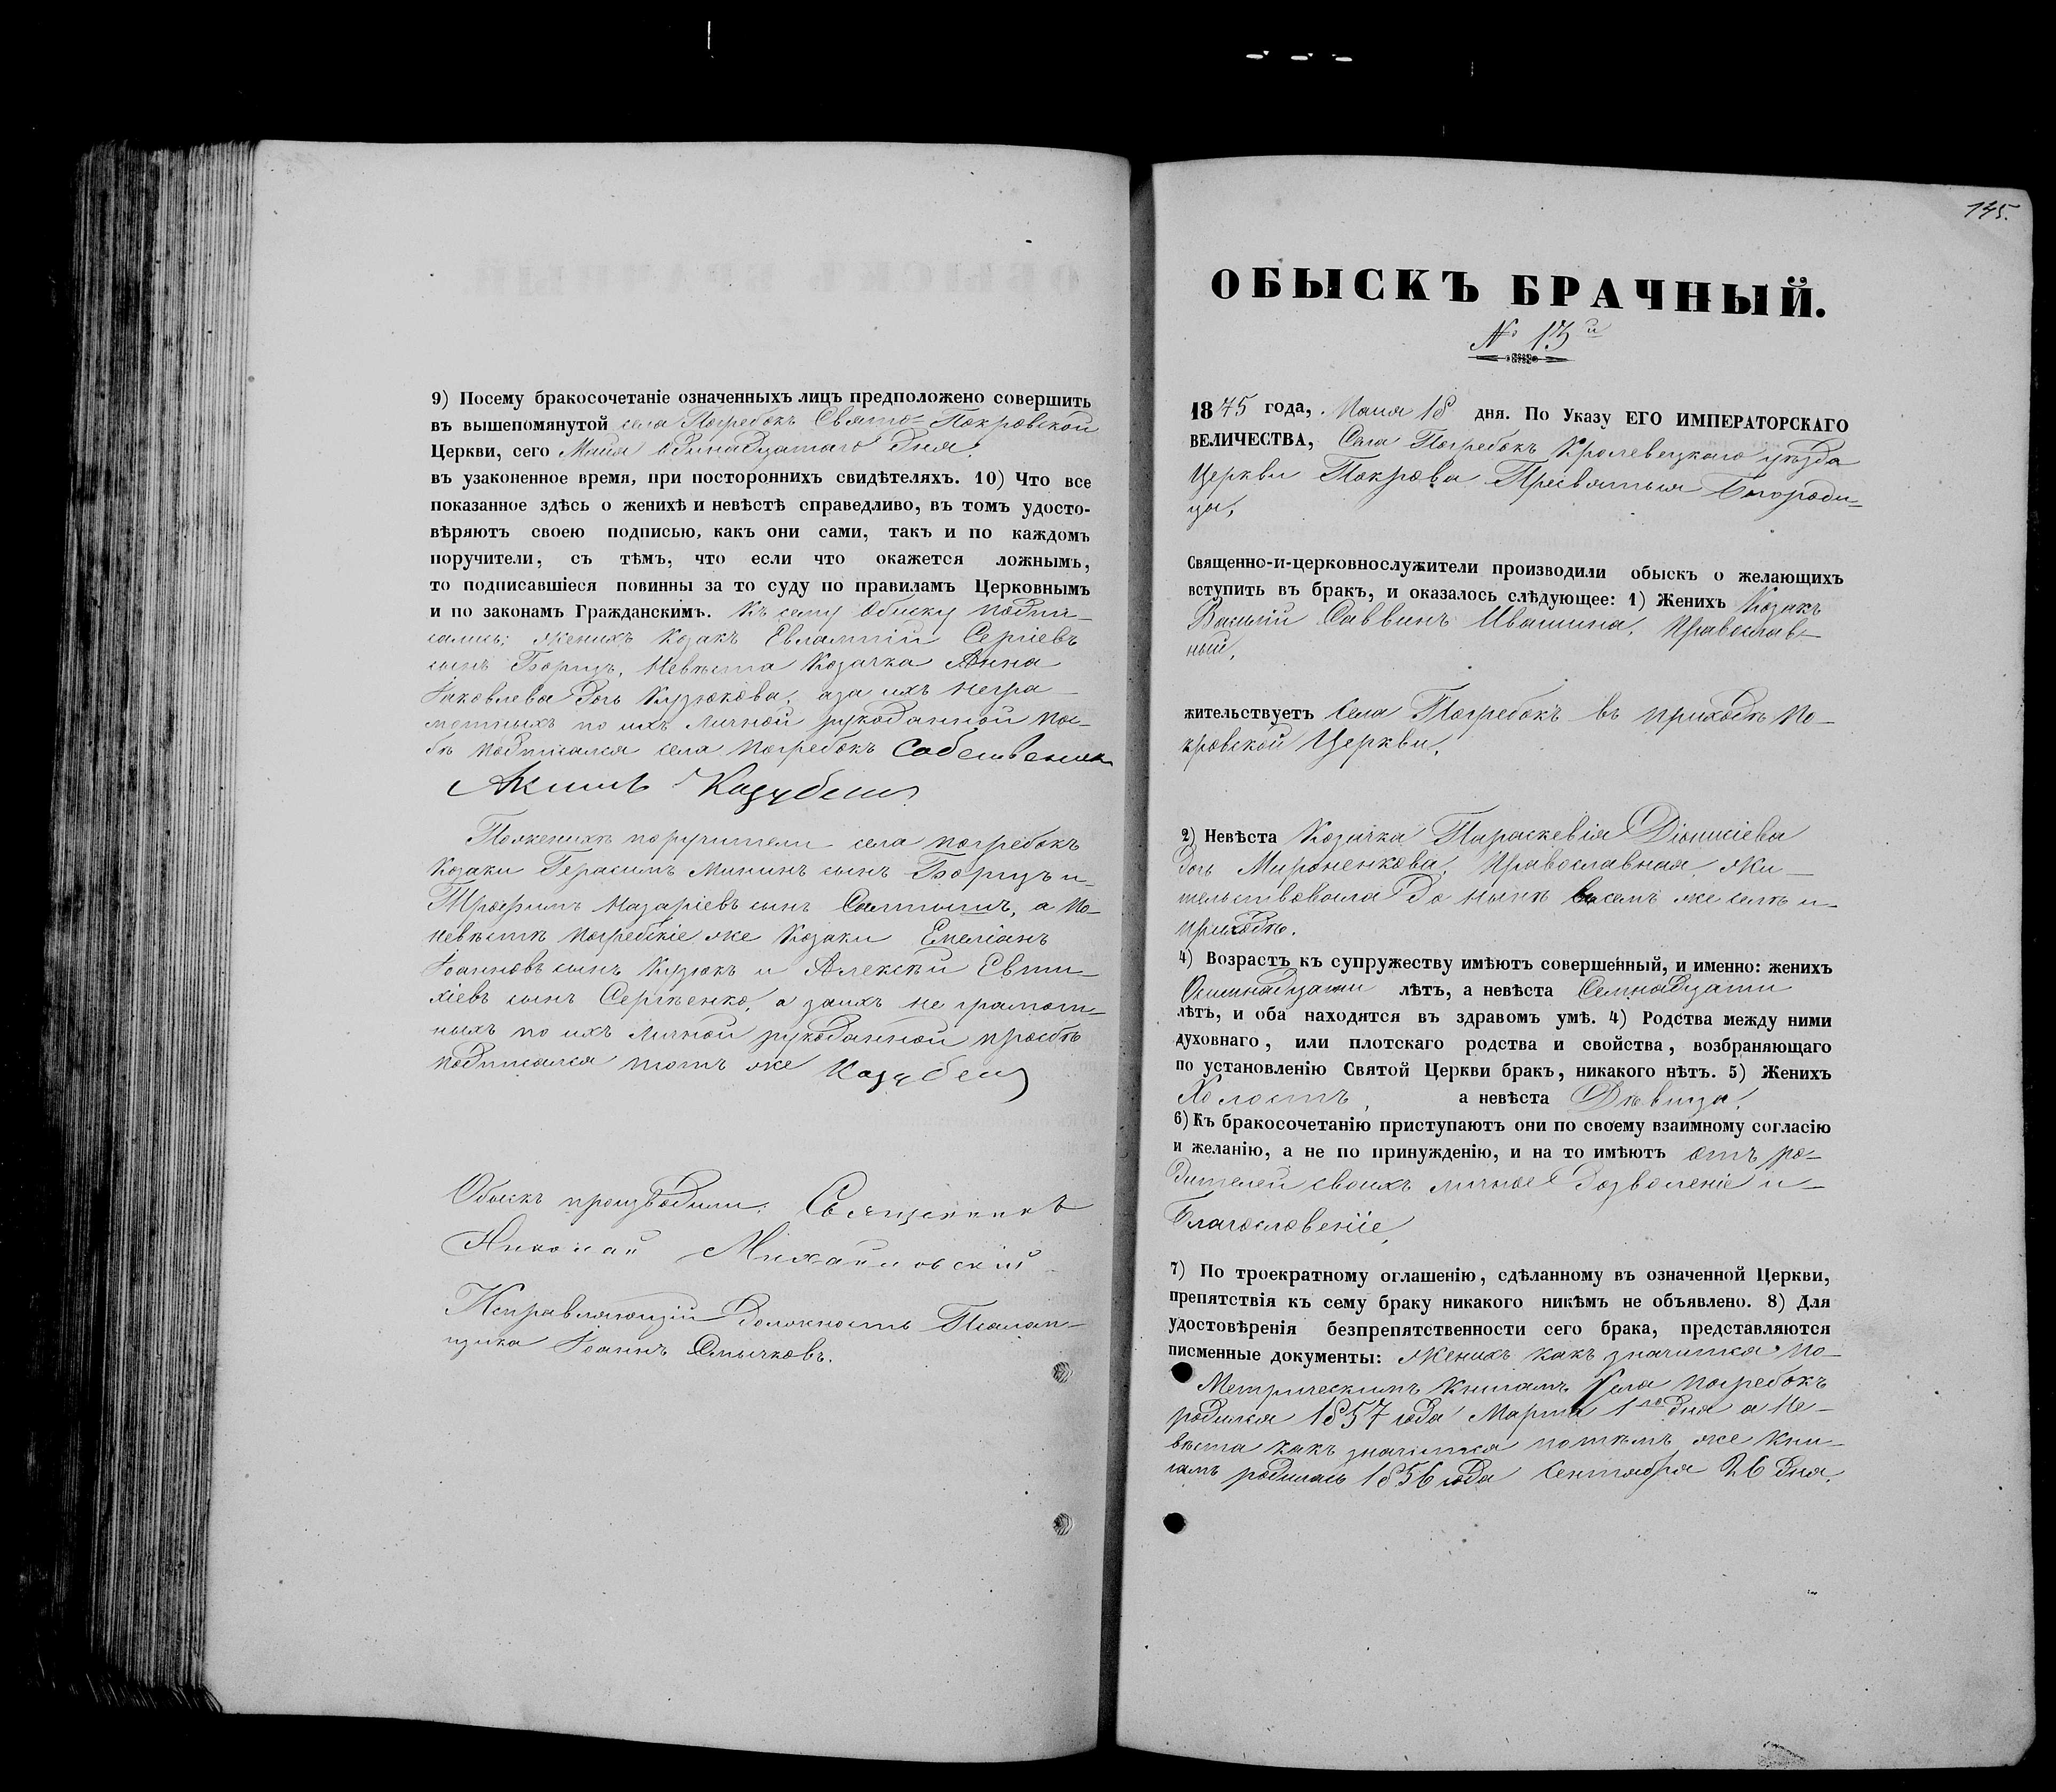 9) Посему бракосочетаніе означенныхъ лицъ предположено совершить
въ вышепомянутой села Погребокъ Свято-Покровской
Церкви, сего Маія одинадцатого дня.
въ узаконенное время, при постороннихъ свидѣтеляхъ. 10) Что все
показанное здѣсь о женихѣ и невѣстѣ справедливо, въ томъ удосто-
вѣряютъ своею подписью, какъ они сами, такъ и по каждомъ
поручители, съ тѣмъ, что если что окажется ложнымъ,
то подписавшіеся повинны за то суду по правиламъ Церковнымъ
и по законамъ Гражданскимъ. Къ сему обыску подпи-
сались: женихъ козакъ Евлампій Сергіевъ
сынъ Борщъ, Невѣста козачка Анна
Іаковлева дочь Кузюкова, а за ихъ негра-
мотныхъ по ихъ личной рукоданной прось-
бѣ подписался села Погребокъ собственикъ
Акимъ
По женихѣ поручители села погребокъ
Козаки Герасимъ Мининъ сынъ Борщъ и
Трофимъ Назаріевъ сынъ а по
невѣстѣ погребскіе же Козаки Емеліанъ
Іоанновъ сынъ Кузюкъ и Алексѣй Евти-
хіевъ сынъ Сергѣенко, а за ихъ не грамот-
ныхъ по ихъ личной рукоданной просьбѣ
подписался тотъ же
Обыскъ производили: Священникъ
Николай Михайловскій
Исправляющій должность Псалом-
щика Іоаннъ Смычковъ.
145.
ОБЫСКЪ БРАЧНЫЙ.
№ 13й
1875 года, Маія 18 дня. По Указу ЕГО ИМПЕРАТОРСКАГО
ВЕЛИЧЕСТВА, Села Погребокъ Кролевецкаго уѣзда
Церкви Покрова Пресвятыя Богороди-
цы,
Священно-и-церковнослужители производили обыскъ о желающихъ
вступить въ бракъ, и оказалось слѣдующее: 1) Женихъ Козакъ
Василій Саввинъ Ивашина, Православ-
ный,
жительствуетъ села Погребокъ въ приходѣ По-
кровской Церкви,
2) Невѣста Козачка Параскевія Діонисіева
дочь Мироненкова, Православная, жи-
тельствовала до нынѣ въ семъ же селѣ и
приходѣ.
4) Возрастъ къ супружеству имѣютъ совершенный, и именно: женихъ
Осимнадцати лѣтъ, а невѣста Семнадцати
лѣтъ, и оба находятся въ здравомъ умѣ. 4) Родства между ними
духовнаго, или плотскаго родства и свойства, возбраняющаго
по установленію Святой Церкви бракъ, никакого нѣтъ. 5) Женихъ
Холостъ, а невѣста Дѣвица.
6) Къ бракосочетанію приступаютъ они по своему взаимному согласію
и желанію, а не по принужденію, и на то имѣютъ отъ ро-
дителей своихъ личное дозволеніе и
Благословеніе,
7) По троекратному оглашенію, сдѣланному въ означенной Церкви,
препятствія къ сему браку никакого никѣмъ не объявлено. 8) Для
удостовѣренія безпрепятственности сего брака, представляются
писменные документы: Женихъ какъ значится по
Метрическимъ Книгамъ Села Погребокъ
родился 1857 года Марта 1го дня а Не-
вѣста какъ значится по тѣмъ же Кни-
гамъ родилась 1856 года Сентября 26 дня.